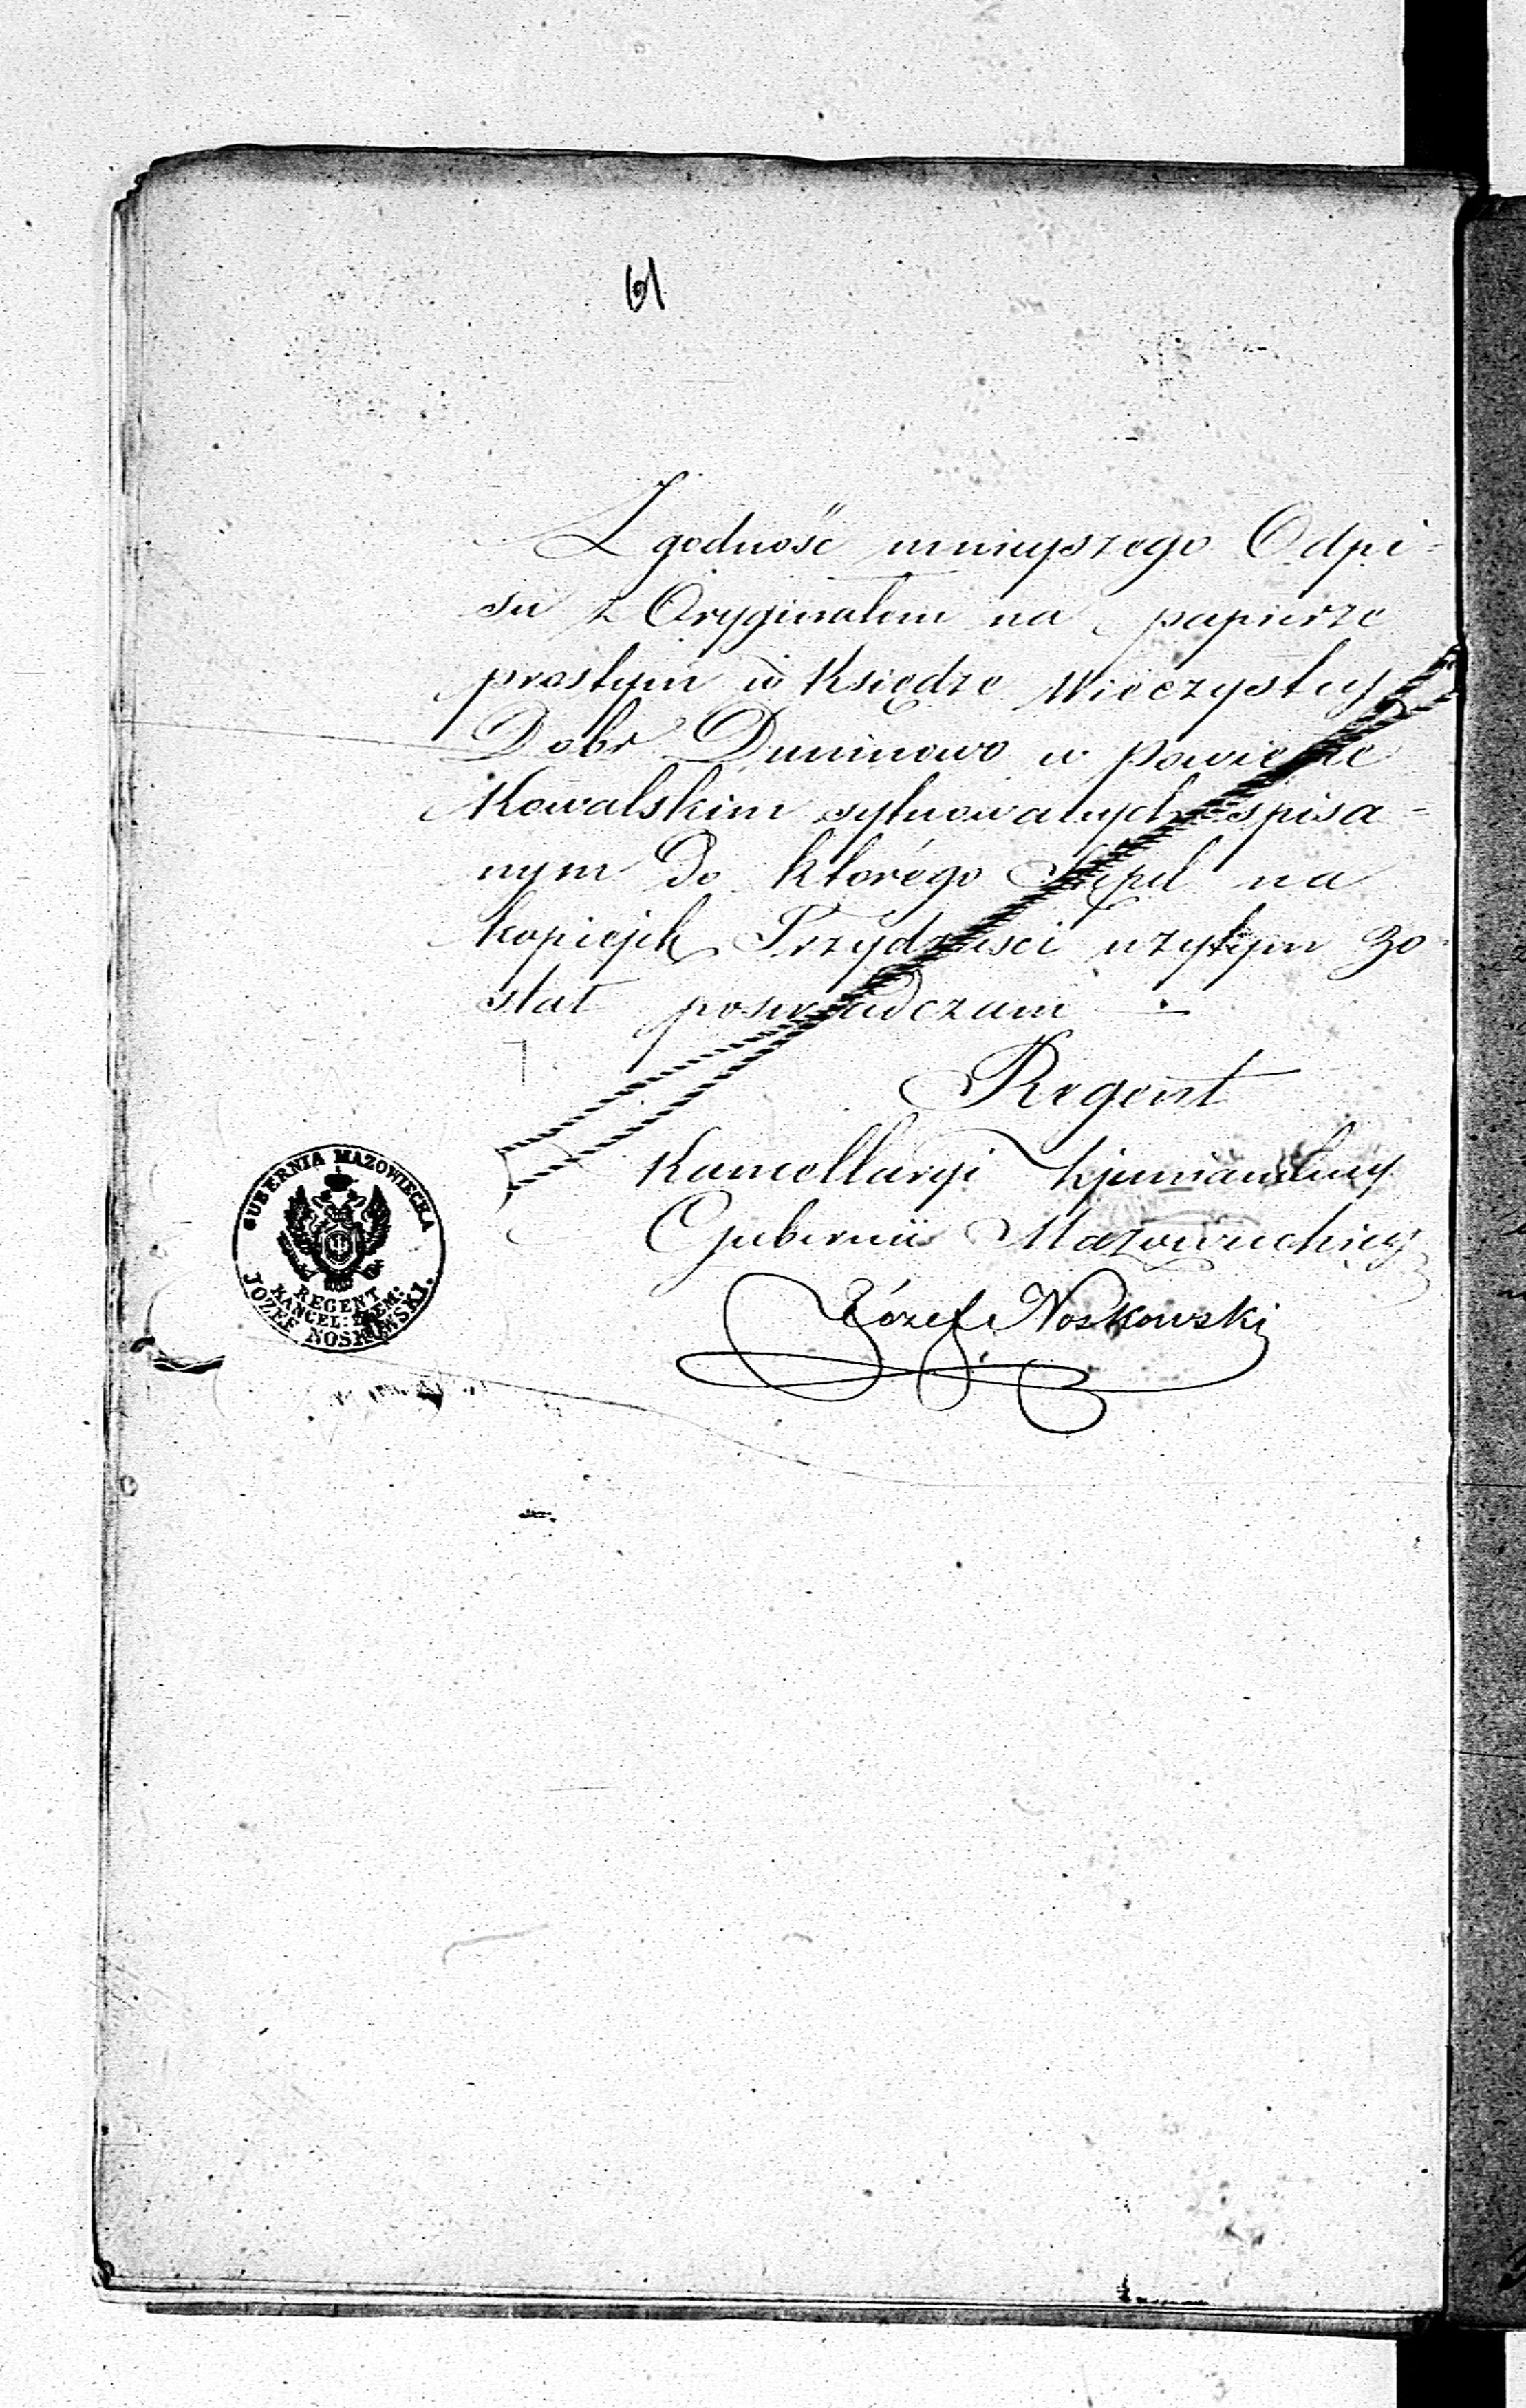 61
Zgodność ninieyszego Odpi=
su z Oryginałem na papierze
prostym w Księdze Wieczystey
Dobr Duninowo w Powiecie
Kowalskim sytuowanych spisa=
nym do którego Stępel na
kopiejk Trzydzieści użytym zo=
stał poswiadczam
Regent
Kancellaryi Ziemiańskiey
Gubernii Mazowieckiey
Józef Noskowski
GUBERNIA MAZOWIECKA
REGENT
KANCEL: ZIEM:
JOZEF NOSKOWSKI.